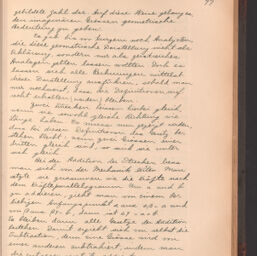 77
gebildete Zahl der. Auf diese Weise gelang es,
den imaginären Grössen geometrische
Bedeutung zu geben.
Es gab bis vor kurzem noch Analytiker,
die diese geometrische Darstellung nicht als
Erklärung, sondern nur als geistreiche
Analogien gelten lassen wollten. Doch es
lassen sich alle Rechnungen mittelst
dieser Darstellung ausführen, sobald man
nur nachweist, dass die Definitionen auf-
recht erhalten werden bleiben.
Zwei Strecken heissen hierbei gleich,
wenn sie sowohl gleiche Richtung wie
Länge haben. Es müssen nun gezeigt werden
dass bei diesen Definitionen das Gesetz be-
stehen bleibt: wenn zwei Grössen einer
dritten gleich sind, so sind sie unter
sich gleich.
Bei der Addition der Strecken lasse
man sich von der Mechanik leiten. Man
setzt sie zusammen wie die Kräfte nach
dem Kräfteparallelogramm. Um a und b
zu addieren, zieht man von einem be-
liebigen Anfangspunkt O aus OA = a und
von A aus AB = b, dann ist OB = a+b.
Es bleiben dann alle Gesetze der Addition
bestehen. Damit ergiebt sich von selbst die
Subtraktion, denn eine Grösse wird von
einer anderen subtrahiert, indem man